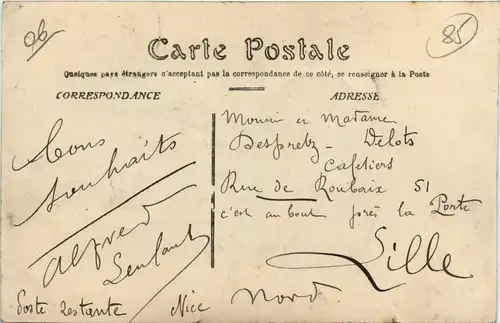 96
85
Carte Postale
Quelques pays étrangers n'acceptant pas la correspondance de ce côté, se renseigner à la Poste
CORRESPONDANCE
ADRESSE
Bons
souhaits
Alfred
Poste restante Nice
Monsieur et Madame
Despretz - Delots
Cafetiers
Rue de Roubaix 51
c'est au bout près la Porte
Lille
Nord.